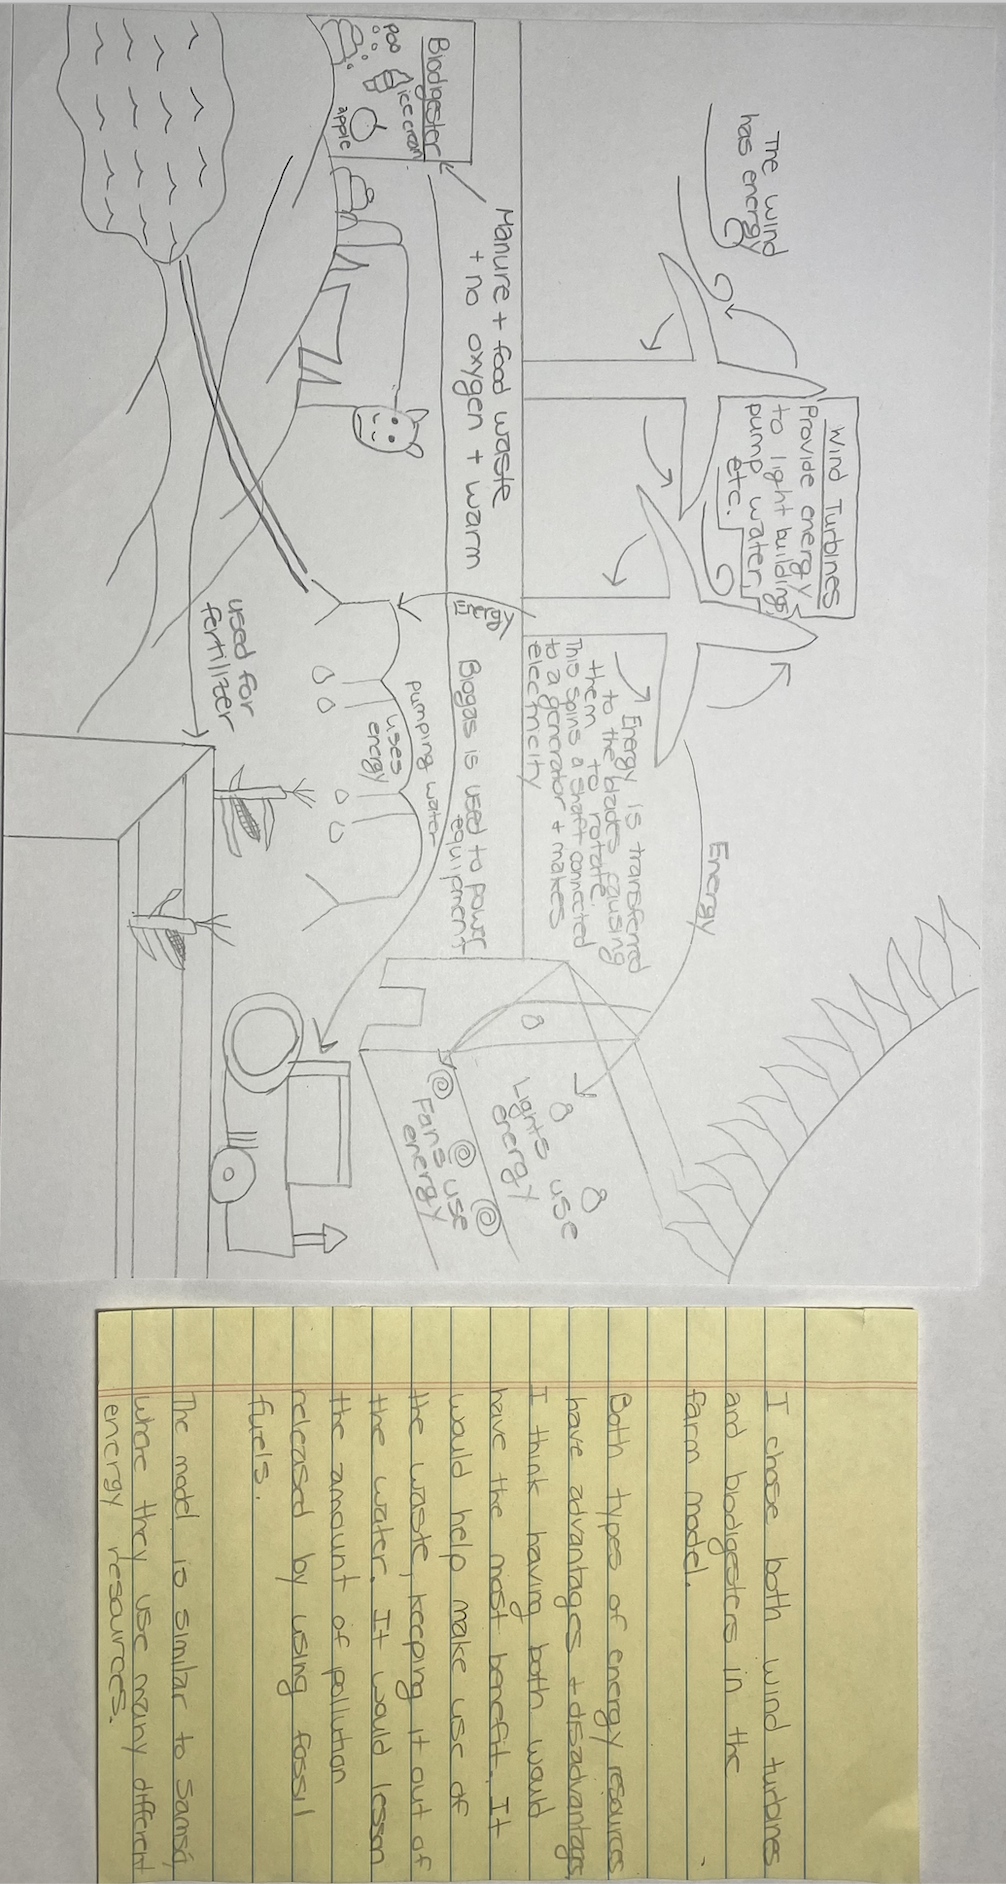 The wind
has energy
Wind Turbines
Provide energy
to light buildings
pump water
etc.
Energy
Energy is transferred
to the blades causing
them to rotate.
This spins a shaft connected
to a generator + makes
electricity
Energy
Manure + food waste
+ no oxygen + warm
Biogas is used to power
equipment
Biodigester
poo
ice cream
apple
pumping water
uses
energy
used for
fertilizer
Lights use
energy
Fans use
energy
I chose both wind turbines
and biodigesters in the
farm model.
Both types of energy resources
have advantages + disadvantages
I think having both would
have the most benefit. It
would help make use of
the waste, keeping it out of
the water. It would lessen
the amount of pollution
released by using fossil
fuels.
The model is similar to Samsø,
where they use many different
energy resources.